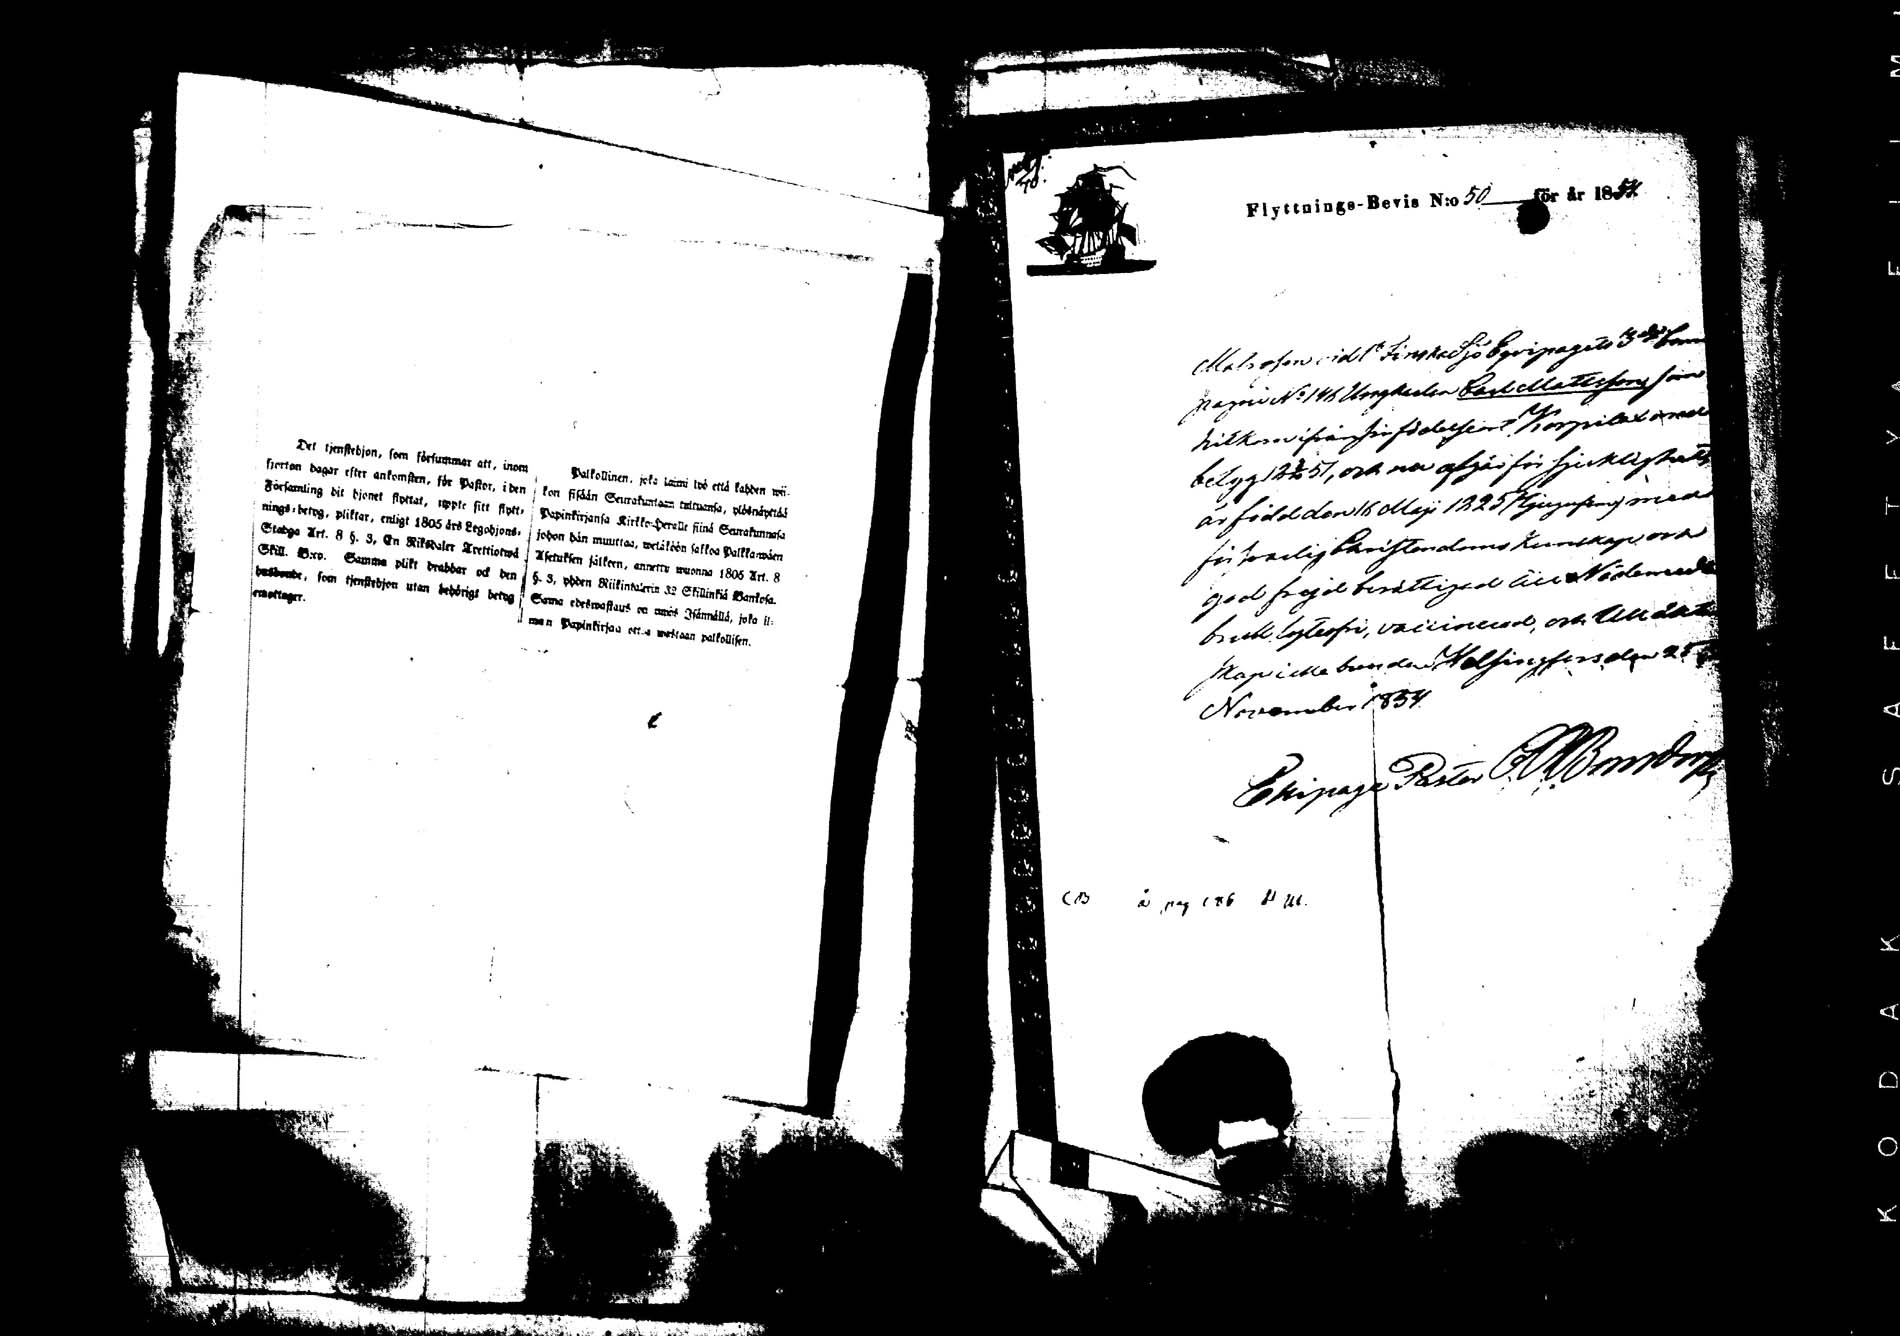 Det tjenstehjon, som försummar att, inom
fjorton dagar efter ankomsten, för Pastor, i den
Församling dit hjonet flyttat, uppte sitt flytt-
nings-betyg, pliktar, enligt 1805 års Legohjons-
Stadga Art. 8 §. 3, En Riksdaler Trettiotwå
Skill. B:co. Samma plikt drabbar ock den
husbonde, som tjenstehjon utan behörigt betyg
emottager.
Palkollinen, joka laimi lyö että kahden wii-
kon sisään Seurakuntaan tultuansa, ylösnäyttää
Papinkirjansa Kirkko-Herralle siinä Seurakunnassa
johon hän muuttaa, wetäköön sakkoa Palkkawäen
Asetuksen jälkeen, annettu wuonna 1805 Art. 8
§. 3, yhden Riikintalerin 32 Skillinkiä Bankosa.
Sama edeswastaus on myös Isännällä, joka il-
man Papinkirjaa ottaa wastaan palkollisen.
Flyttnings-Bevis N:o 50 för år 1854
Matrosen vid 1a Finska Sjö Eqvipagets 3dje Com
pagnie No 146 Ungkarlen Carl Mattsson, som
hitkom ifrån sin födelseort Korpilax med
betyg 12 51, och nu afgår för sjuklighet
är född den 16 Maji 1825 med
försvarlig Christendoms kunskap och
god frejd berättigad till Nattvardens
bruk, lytesfri, vaccinerad, och till äkten
skap icke bunden Helsingfors den 25
November 1854.
Ekipage Pastor
å pag 186
KODAK SAFETY FILM